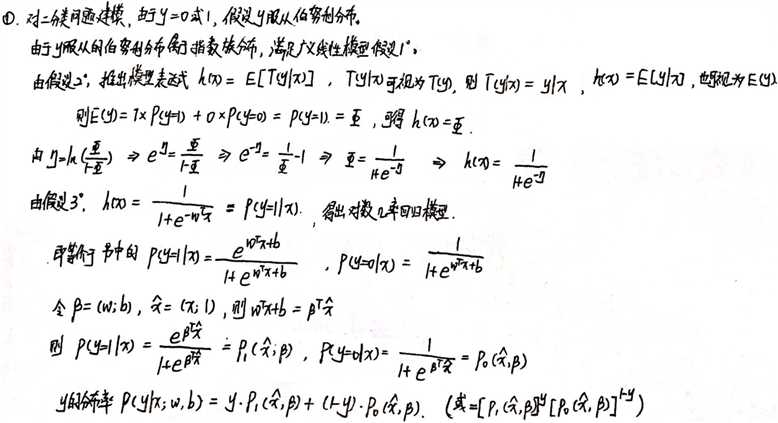 ①. 对二分类问题建模，由于y=0或1，假设y服从伯努利分布。
由于y服从的伯努利分布属于指数族分布，满足广义线性模型假设1°。
由假设2°，推出模型表达式 h(x) = E[T(y|x)] ，T(y|x)可视为T(y)，则 T(y|x) = y|x ，h(x) = E[y|x]，也可视为 E(y)
则E(y) = 1×P(y=1) + 0×P(y=0) = P(y=1) = Φ ，可得 h(x)=Φ.
由 η=ln(Φ/(1-Φ)) ⇒ e^η = Φ/(1-Φ) ⇒ e^{-η} = 1/Φ - 1 ⇒ Φ = 1/(1+e^{-η}) ⇒ h(x) = 1/(1+e^{-η})
由假设3°，h(x) = 1/(1+e^{-w^Tx}) = P(y=1|x). ，得出对数几率回归模型.
即等价于 书中的 P(y=1|x) = e^{w^Tx+b}/(1+e^{w^Tx+b}) ，P(y=0|x) = 1/(1+e^{w^Tx+b})
令 β = (w; b) , x̂ = (x; 1) , 则 w^Tx+b = β^Tx̂
则 P(y=1|x) = e^{β^Tx̂}/(1+e^{β^Tx̂}) = P₁(x̂;β) , P(y=0|x) = 1/(1+e^{β^Tx̂}) = P₀(x̂,β)
y的分布率 P(y|x; w, b) = y·P₁(x̂,β) + (1-y)·P₀(x̂,β). (或=[P₁(x̂,β)]^y [P₀(x̂,β)]^{1-y})